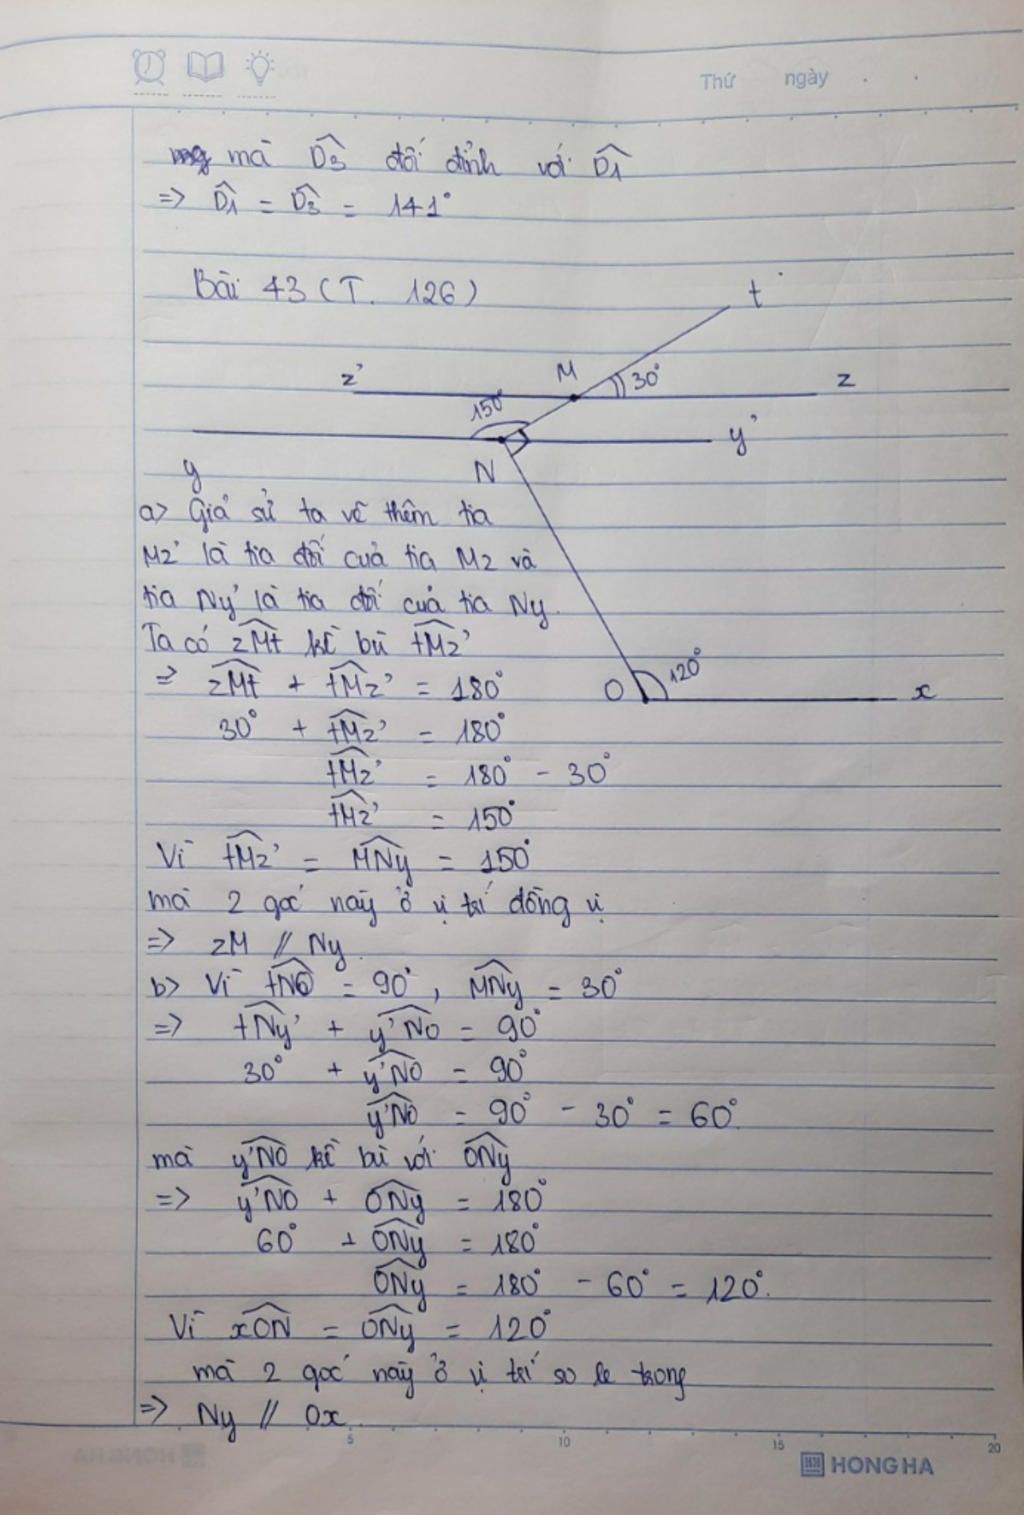 Thứ ngày . .
mà D̂3 đối đỉnh với D̂1
=> D̂1 = D̂3 = 141°
Bài 43 (T. 126)
t
z' M 30° z
150°
y N y'
a> Giả sử ta vẽ thêm tia
Mz' là tia đối cuả tia Mz và
tia Ny' là tia đối cuả tia Ny.
Ta có zMt kề bù tMz'
=> zMt + tMz' = 180°
O 120° x
30° + tMz' = 180°
tMz' = 180° - 30°
tMz' = 150°
Vì tMz' = MNy = 150°
mà 2 goć này ở vị trí đồng vị
=> zM // Ny
b> Vì tNO = 90°, MNy = 30°
=> tNy' + y'NO = 90°
30° + y'NO = 90°
y'NO = 90° - 30° = 60°.
mà y'NO kề bù với ONy
=> y'NO + ONy = 180°
60° + ONy = 180°
ONy = 180° - 60° = 120°.
Vì xON = ONy = 120°
mà 2 goć này ở vị trí so le trong
=> Ny // Ox.
5 10 15 20
HONG HA